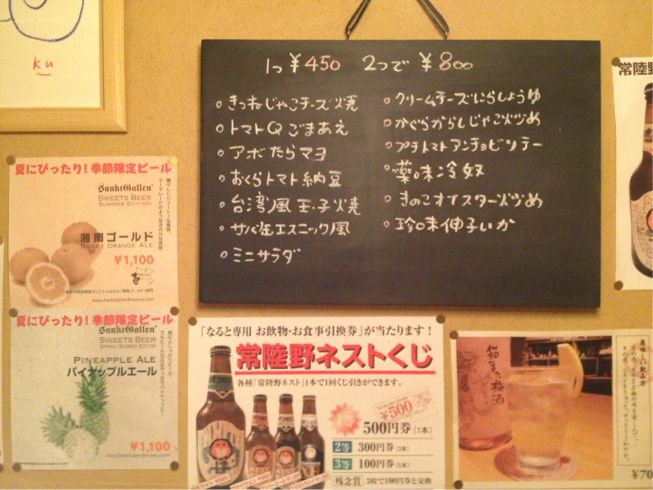 Ku
1つ ¥450 2つで ¥800
きつねじゃこチーズ焼
トマトQごまあえ
アボたらマヨ
おくらトマト納豆
台湾風玉子焼
サバ塩エスニック風
ミニサラダ
クリームチーズにらしょうゆ
プチトマトアンチョビソテー
薬味冷奴
きのこオイスター炒め
珍味伸子いか
夏にぴったり！季節限定ビール
SanktGallen
SWEETS BEER
SUMMER EDITION
湘南ゴールド
SWEET ORANGE ALE
¥1,100
夏にぴったり！季節限定ビール
SanktGallen
SWEETS BEER
PINEAPPLE ALE
パイナップルエール
¥1,100
「なると専用 お飲物・お食事引換券」が当たります！
常陸野ネストくじ
各種「常陸野ネスト」1本で1回くじ引きができます。
¥500
500円券（1本）
2等 300円券
3等 100円券
残念賞 3枚で100円券と交換
梅酒
¥70
常陸野